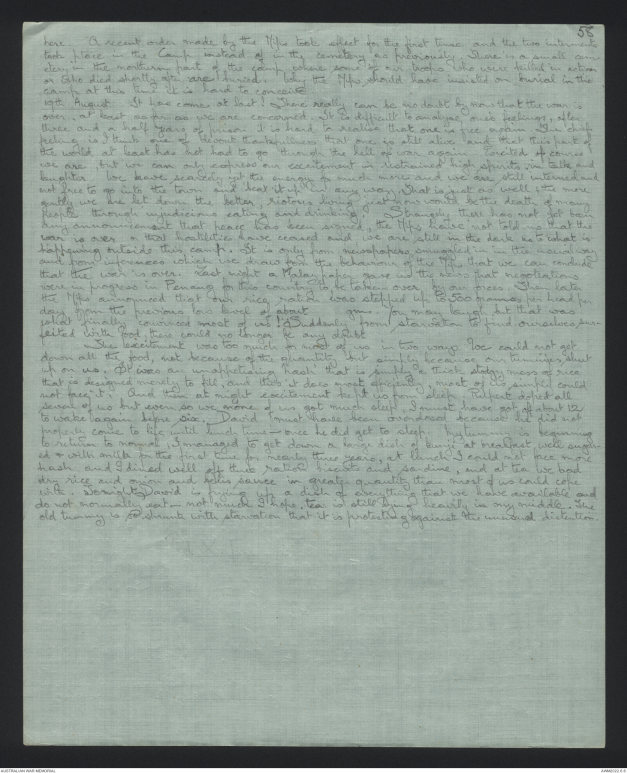 58
here. A recent order made by the Nips took effect for the first time and the two interments
took place in the Camp instead of in the cemetery as previously. There is a small ceme-
tery in the northern part of the camp where some of our troops who were killed in action
or who died shortly after are buried. Why the Nips should have insisted on burial in the
camp at this time it is hard to conceive
19th August. It has come at last! There really can be no doubt by now that the war is
over, at least as far as we are concerned. It is difficult to analyse one's feelings, after
three and a half years of prison it is hard to realise that one is free again. The chief
feeling is I think one of devout thankfulness that one is still alive and that this part of
the world at least has not had to go through the hell of war again. Excited of course
we are, but we can only express our excitement in restrained high spirits, in talk and
laughter. We have scarcely yet the energy for much more and we are still interned and
not free to go into the town and beat it up in any way. That is just as well; the more
gently we are let down the better, riotous living just now would be the death of many
people through injudicious eating and drinking. Strangely there has not yet been
any announcement that peace has been signed, the Nips have not told us that the
war is over or that hostilities have ceased and we are still in the dark as to what is
happening outside this camp. It is only from newspapers smuggled in in the
and from inferences which we draw from the behaviour of the Nips that we can conclude
that the war is over. Last night a Malay paper gave us the news that negotiations
were in progress in Penang for this country to be taken over by our forces. Then later
the Nips announced that our rice ration was stepped up to 500 grammes per head per
day from the previous low level of about gms. You may laugh but that was
what finally convinced most of us! Suddenly from starvation to find ourselves sur-
feited with food, there could no longer be any doubt.
The excitement was too much for most of us in two ways. We could not get
down all the food, not because of the quantity but simply because our tummies shut
up on us. It was an unappetising hash that is simply a thick stodgy mess of rice
that is designed merely to fill, and this it does most efficiently, most of us simply could
not face it. And then at night excitement kept us from sleep. Rupert doped all
seven of us but even so we none of us got much sleep, I must have got off about 12
to wake again before six. David must have been overdosed because he did not
properly come to life until lunch time once he did get to sleep. My tummy is beginning
to return to normal, I managed to get down a large dish of bunj at breakfast with sugar
ed & with milk for the first time for nearly three years, at lunch I could not face more
hash and I dined well off thick ration biscuits and sardine, and at tea we had
dry rice and onion and beans sauce in greater quantity than most of us could cope
with. Tonight David is frying up a dish of everything that we have available and
do not normally eat — not much I hope, tea is still lying heavily in my middle. The
old tummy is so shrunk with starvation that it is protesting against the unusual distention.
AUSTRALIAN WAR MEMORIAL